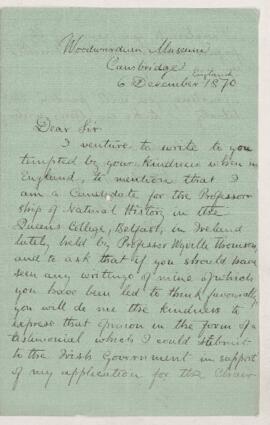 Woodwardian Museum
Cambridge England
6 December 1870
Dear Sir
I venture to write to you
tempted by your kindness when in
England, to mention that I
am a Candidate for the Professor
ship of Natural History in the
Queens College, Belfast, in Ireland
lately held by Professor Wyville Thomson
and to ask that if you should have
seen any writings of mine of which
you have been led to think favorably
you will do me the kindness to
express that opinion in the form of a
testimonial which I could submit
to the Irish Government in support
of my application for the Chair